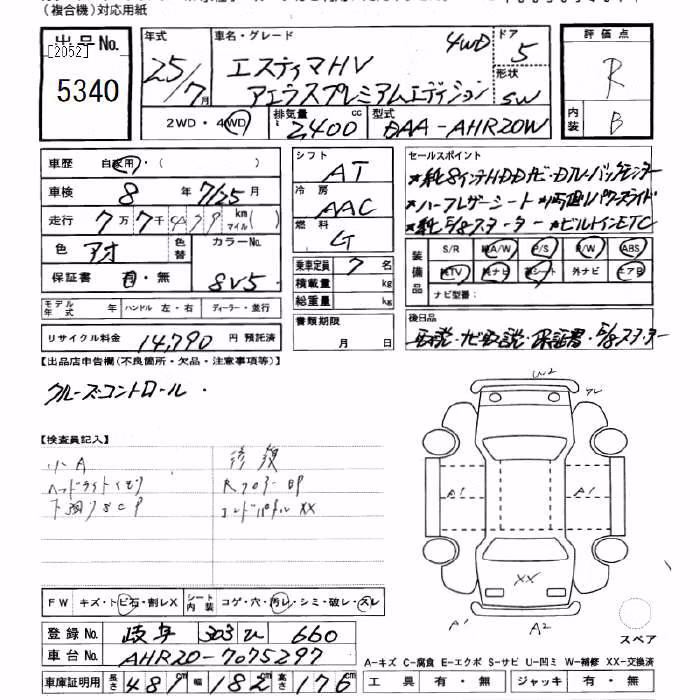 （複合機）対応用紙
出品No.
[2052]
5340
年式 25/7月
車名・グレード エスティマHV 4WD
アエラスプレミアムエディション
ドア 5
形状 SW
2WD・4WD
排気量 2,400 cc
型式 DAA-AHR20W
評価点 R
内装 B
車歴 自家用・（ ）
車検 8年7/25月
走行 7万7千 km マイル（ ）
色 アオ
色替
カラーNo. 8V5
保証書 有・無
モデル年式 年 ハンドル 左・右 ディーラー・並行
リサイクル料金 14,790 円 預託済
シフト AT
冷房 AAC
燃料 G
乗車定員 7 名
積載量 kg
総重量 kg
書類期限 月 日
セールスポイント
★純8インチHDDナビ・Dルーバックモニター
★ハーフレザーシート ★両側パワースライド
★純 E/gスターター ★ビルトインETC
装備品
S/R 純A/W P/S P/W ABS
純TV 純ナビ 革シート 外ナビ エアB
ナビ型番：
後日品
取説・ナビ取説・保証書・E/gスターター
【出品店申告欄（不良箇所・欠品・注意事項等）】
クルーズコントロール・
【検査員記入】
小A
ヘッドライトくもり
下廻りSCP
修復
Rフロアー凹
エンドパネルXX
W2
A1
A1
XX
A1
A2
スペア
FW キズ・トビ石・割レX
シート内装 コゲ・穴・汚レ・シミ・破レ・スレ
登録No. 岐阜 303 ひ 660
車台No. AHR20-7075297
車庫証明用 長さ 481cm 幅 182cm 高さ 176cm
A-キズ C-腐食 E-エクボ S-サビ U-凹ミ W-補修 XX-交換済
工具 有・無 ジャッキ 有・無